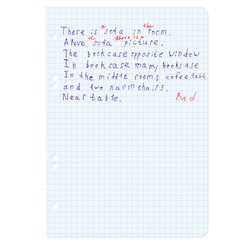 There is a sofa in the room.
Above the sofa there is a picture.
The bookcase opposite window
In bookcase many books ase
In the middle room's cofee table
and two narm chairs.
Near table. Bad